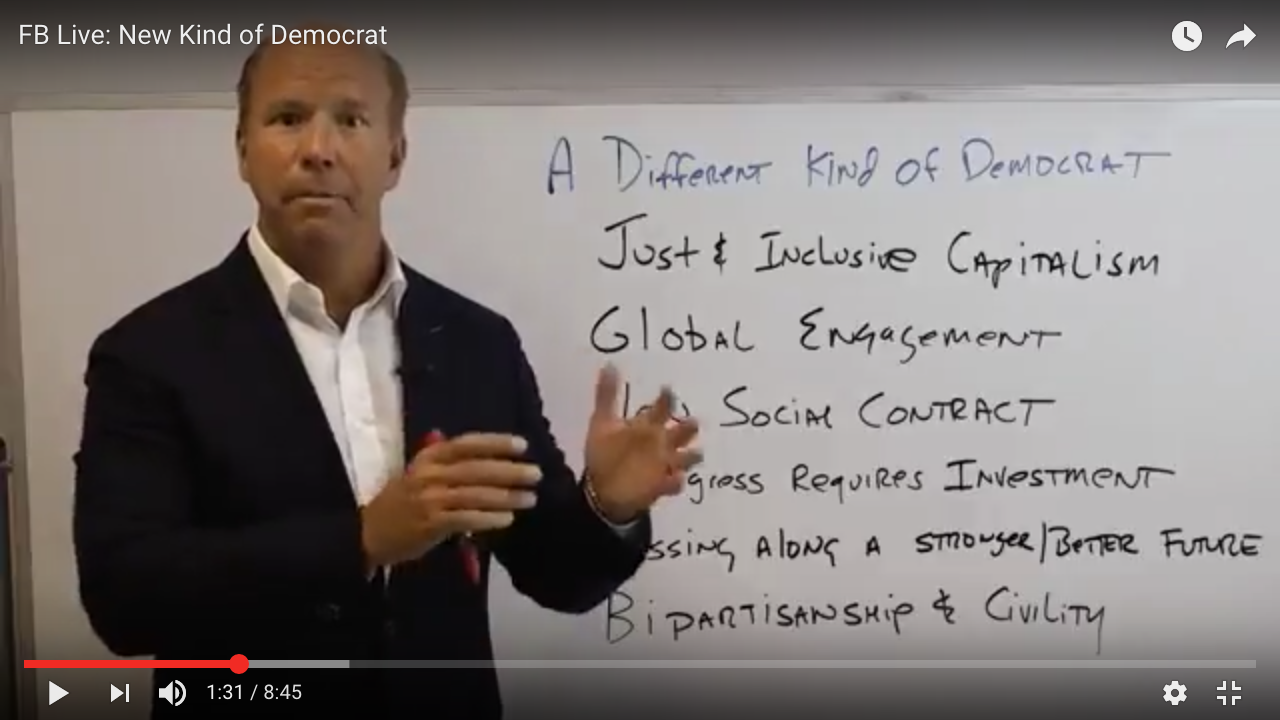 FB Live: New Kind of Democrat
A Different Kind of DEMOCRAT
Just & Inclusive CAPITALISM
Global ENGAGEMENT
SOCIAL CONTRACT
gress Requires INVESTMENT
ssing ALONG A STRONGER/BETTER FUTURE
BIPARTISANSHIP & CIVILITY
1:31 / 8:45